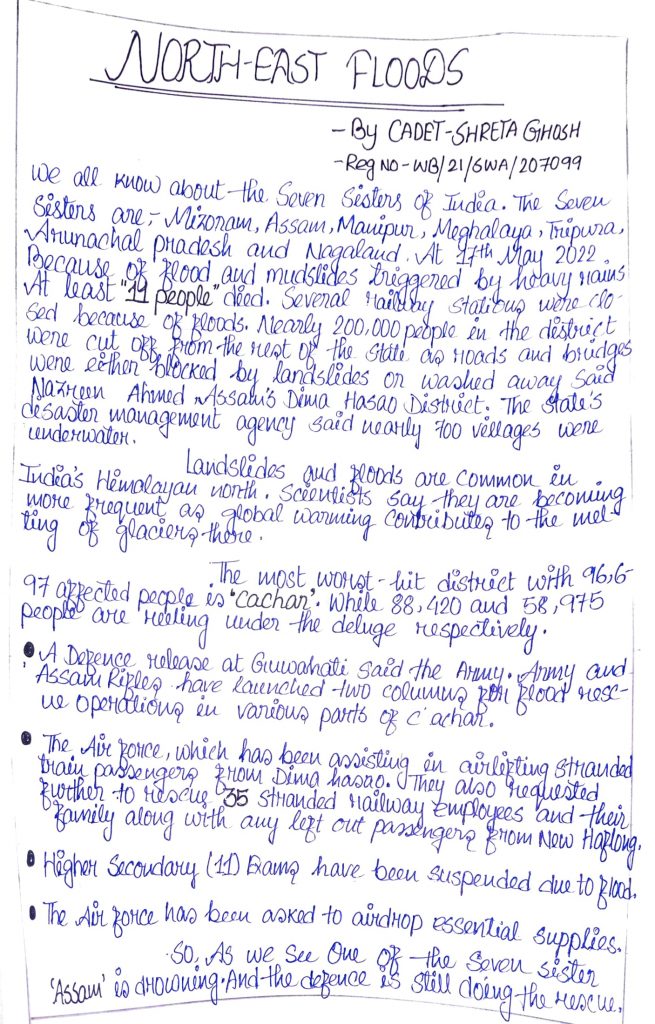 NORTH-EAST FLOODS
- By CADET-SHRETA GHOSH
- Reg NO - WB/21/SWA/207099
We all know about the Seven Sisters of India. The Seven
Sisters are,- Mizoram, Assam, Manipur, Meghalaya, Tripura,
Arunachal pradesh and Nagaland. At 17th May 2022.
Because of flood and mudslides triggered by heavy rains
At least "11 people" died. Several railway stations were clo-
sed because of floods. Nearly 200,000 people in the district
were cut off from the rest of the state as roads and bridges
were either blocked by landslides or washed away said
Nazreen Ahmed Assam's Dima Hasao District. The state's
desaster management agency said nearly 700 villages were
underwater.
Landslides and floods are common in
India's Himalayan north. Scientists say they are becoming
more frequent as global warming contributes to the mel-
ting of glaciers there.
The most worst-hit district with 96,6-
97 affected people is 'cachar'. While 88,420 and 58,975
people are reeling under the deluge respectively.
• A Defence release at Guwahati said the Army. Army and
'Assam Rifles have launched two columns for flood resc-
ue operations in various parts of c'achar.
• The Air force, which has been assisting in airlifting stranded
train passengers from Dima hasao. They also requested
further to rescue 35 stranded railway employees and their
family along with any left out passengers from New Haflong.
• Higher Secondary (11) Exams have been suspended due to flood.
• The Air force has been asked to airdrop essential supplies.
So, As we see One of the Seven sister
'Assam' is drowning. And the defence is still doing the rescue.